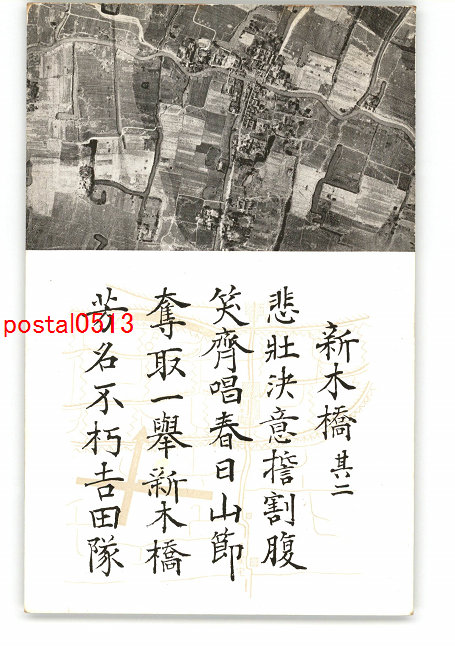 新木橋 其二
悲壯決意擔割腹
笑齊唱春日山節
奪取一舉新木橋
芳名不朽吉田隊
postal0513